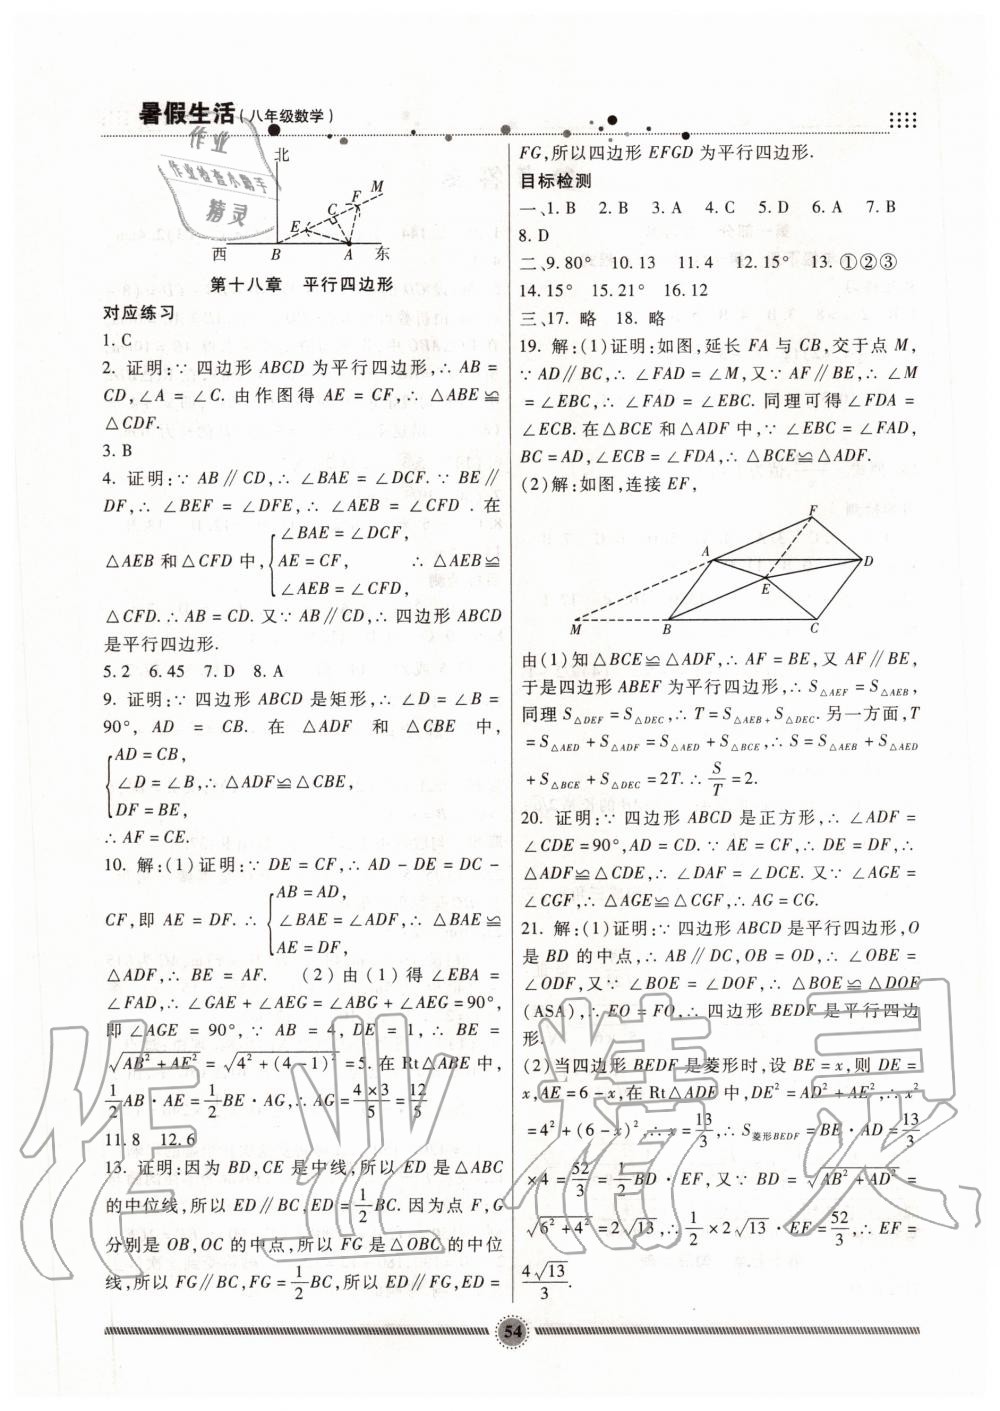 暑假生活(八年级数学)
作业
作业检查小助手
精灵
北
M
F
C
E
西 B A 东
第十八章 平行四边形
对应练习
1. C
2. 证明:∵ 四边形 ABCD 为平行四边形,∴ AB =
CD,∠A = ∠C. 由作图得 AE = CF,∴ △ABE≌
△CDF.
3. B
4. 证明:∵ AB∥CD,∴ ∠BAE = ∠DCF. ∵ BE∥
DF,∴ ∠BEF = ∠DFE,∴ ∠AEB = ∠CFD . 在
△AEB 和△CFD 中,{∠BAE = ∠DCF, AE = CF, ∠AEB = ∠CFD, ∴ △AEB≌
△CFD. ∴ AB = CD. 又∵ AB∥CD,∴ 四边形 ABCD
是平行四边形.
5. 2 6. 45 7. D 8. A
9. 证明:∵ 四边形 ABCD 是矩形,∴ ∠D = ∠B =
90°, AD = CB. 在 △ADF 和 △CBE 中,
{AD = CB,
∠D = ∠B,∴ △ADF≌△CBE,
DF = BE,
∴ AF = CE.
10. 解:(1)证明:∵ DE = CF,∴ AD - DE = DC -
CF,即 AE = DF. ∴ {AB = AD, ∠BAE = ∠ADF, AE = DF, ∴ △BAE≌
△ADF,∴ BE = AF. (2)由(1)得∠EBA =
∠FAD,∴ ∠GAE + ∠AEG = ∠ABG + ∠AEG = 90°,
即∠AGE = 90°,∵ AB = 4, DE = 1,∴ BE =
√(AB² + AE²) = √(4² + (4 - 1)²) = 5. 在 Rt△ABE 中,
1/2 AB · AE = 1/2 BE · AG,∴ AG = (4×3)/5 = 12/5
11. 8 12. 6
13. 证明:因为 BD,CE 是中线,所以 ED 是△ABC
的中位线,所以 ED∥BC,ED = 1/2 BC. 因为点 F,G
分别是 OB,OC 的中点,所以 FG 是△OBC 的中位
线,所以 FG∥BC,FG = 1/2 BC,所以 ED∥FG,ED =
FG,所以四边形 EFGD 为平行四边形.
目标检测
一、1. B 2. B 3. A 4. C 5. D 6. A 7. B
8. D
二、9. 80° 10. 13 11. 4 12. 15° 13. ①②③
14. 15° 15. 21° 16. 12
三、17. 略 18. 略
19. 解:(1)证明:如图,延长 FA 与 CB,交于点 M,
∵ AD∥BC,∴ ∠FAD = ∠M,又∵ AF∥BE,∴ ∠M
= ∠EBC,∴ ∠FAD = ∠EBC. 同理可得∠FDA =
∠ECB. 在△BCE 和△ADF 中,∵ ∠EBC = ∠FAD,
BC = AD,∠ECB = ∠FDA,∴ △BCE≌△ADF.
(2)解:如图,连接 EF,
F
A D
E
M B C
由(1)知△BCE≌△ADF,∴ AF = BE,又 AF∥BE,
于是四边形 ABEF 为平行四边形,∴ S△AEF = S△AEB,
同理 S△DEF = S△DEC,∴ T = S△AEB + S△DEC. 另一方面,T
= S△AED + S△ADF = S△AED + S△BCE,∴ S = S△AEB + S△AED
+ S△BCE + S△DEC = 2T. ∴ S/T = 2.
20. 证明:∵ 四边形 ABCD 是正方形,∴ ∠ADF =
∠CDE = 90°,AD = CD. ∵ AE = CF,∴ DE = DF,∴
△ADF≌△CDE,∴ ∠DAF = ∠DCE. 又∵ ∠AGE =
∠CGF,∴ △AGE≌△CGF,∴ AG = CG.
21. 解:(1)证明:∵ 四边形 ABCD 是平行四边形,O
是 BD 的中点,∴ AB∥DC,OB = OD,∴ ∠OBE =
∠ODF,又∵ ∠BOE = ∠DOF,∴ △BOE≌△DOF
(ASA),∴ EO = FO,∴ 四边形 BEDF 是平行四边
形.
(2)当四边形 BEDF 是菱形时,设 BE = x,则 DE =
x,AE = 6 - x,在 Rt△ADE 中,DE² = AD² + AE²,∴ x²
= 4² + (6 - x)²,∴ x = 13/3,∴ S菱形BEDF = BE · AD = 13/3
×4 = 52/3 = 1/2 BD · EF,又∵ BD = √(AB² + AD²) =
√(6² + 4²) = 2√13,∴ 1/2 × 2√13 · EF = 52/3,∴ EF =
4√13/3.
54
作业精灵